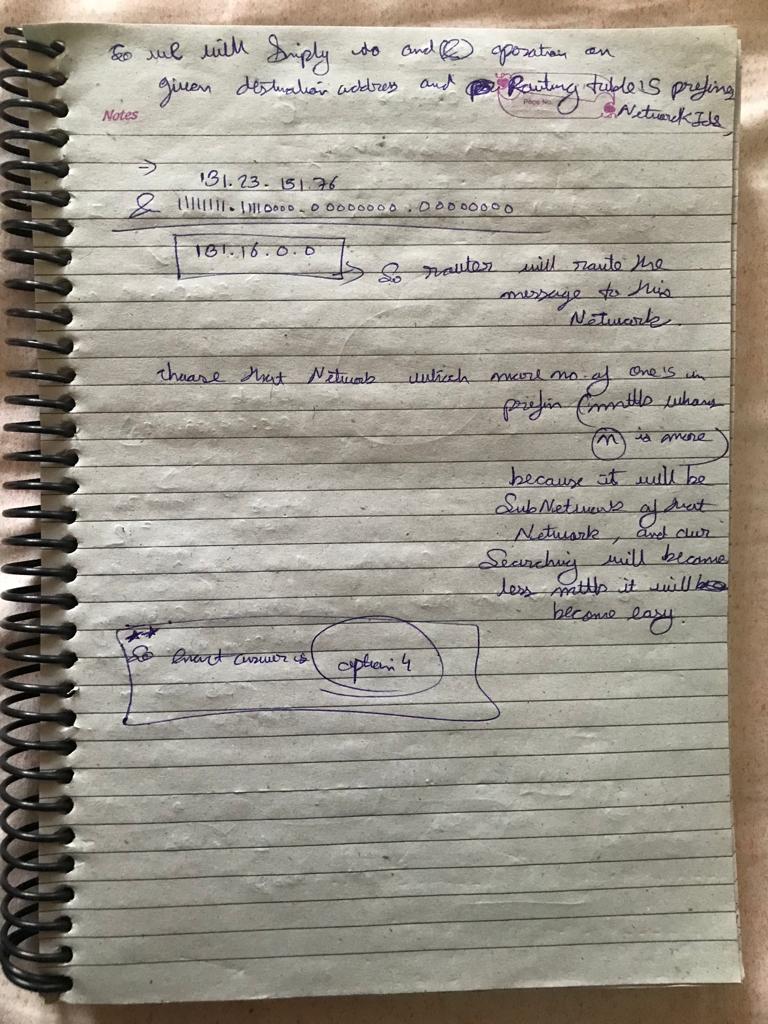 So we will Simply do and(&) operation on
given destination address and Routing table IS prefixing
Page No.
Notes
Network Ids,
->
131.23.151.76
& 11111111.1110000.00000000.00000000
131.16.0.0
-> So router will route the
message to this
Network.
choose that Network which more no. of one is in
prefix (
where
n is more)
because it will be
SubNetwork of that
Network, and our
Searching will become
less it will be
become easy.
**
So exact answer is option 4